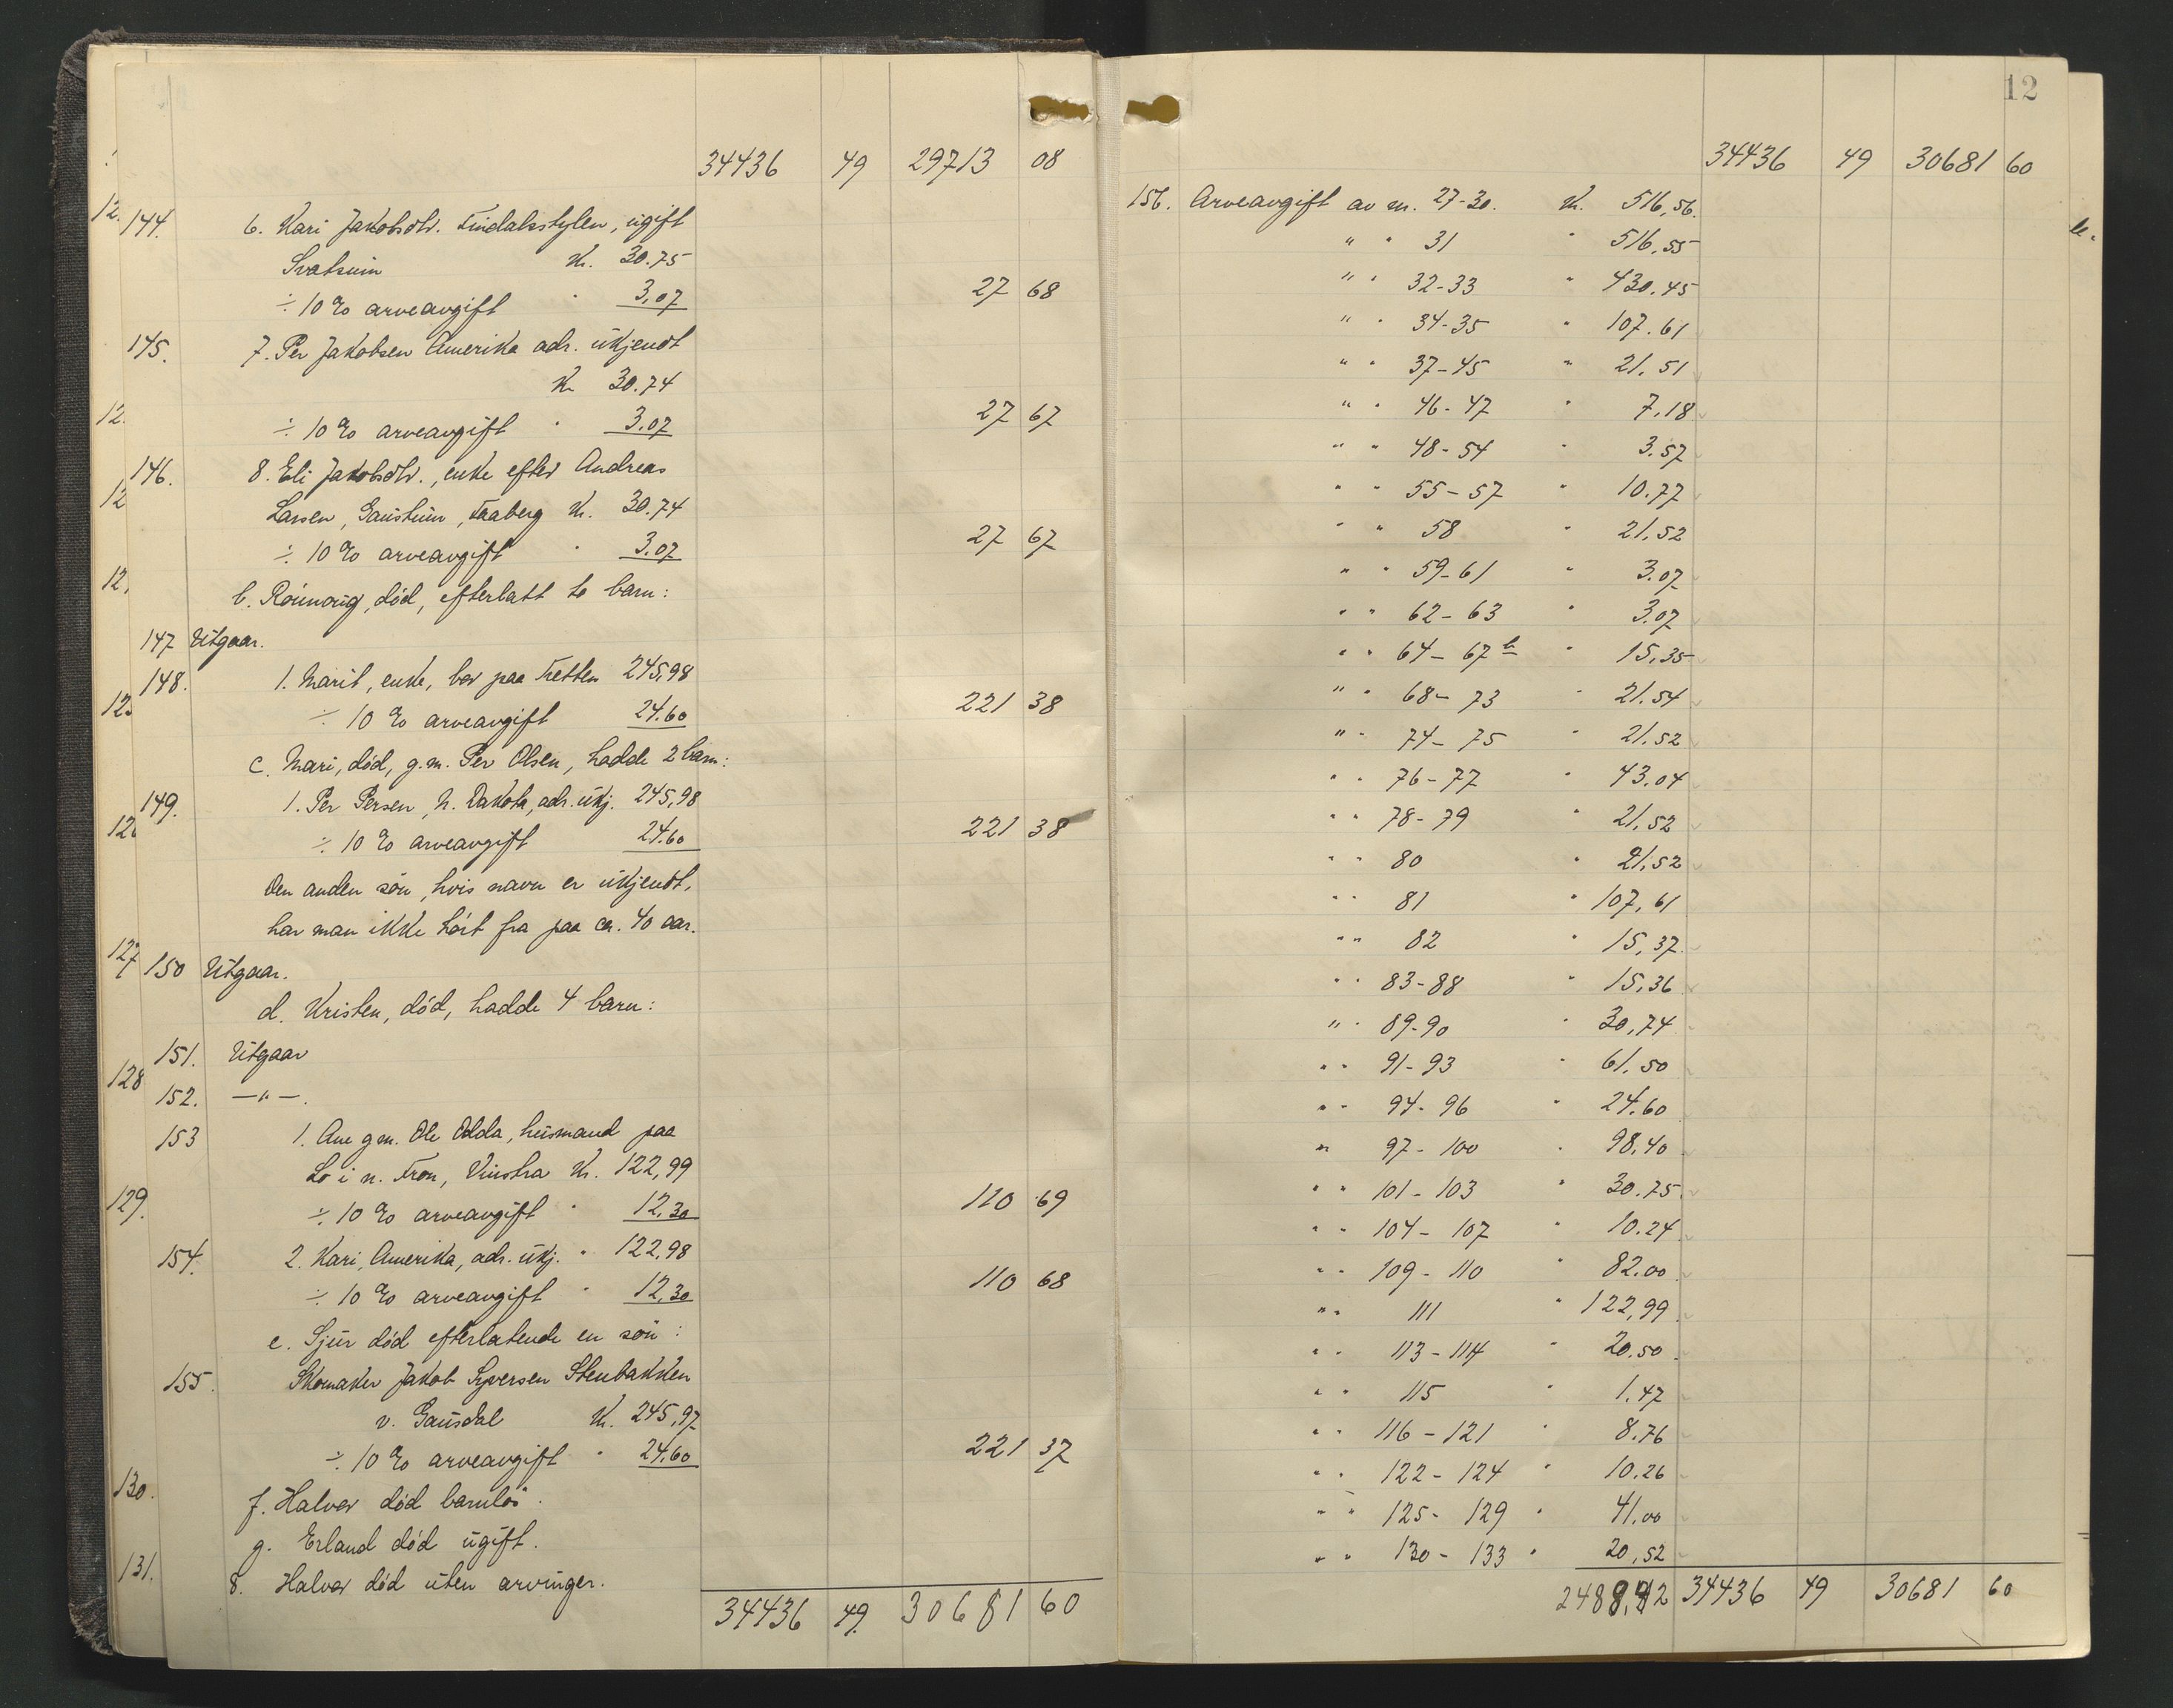 34436 49 29713 08
144. 6. Kari Jakobsdtr. Findalsstylen, ugift
Svatsum Kr. 30.75
÷ 10 % arveavgift " 3,07 27 68
145. 7. Per Jakobsen Amerika adr. ukjendt
Kr. 30.74
÷ 10 % arveavgift " 3.07 27 67
146. 8. Eli Jakobsdtr., enke efter Andreas
Larsen, Gaustum, Faaberg Kr. 30.74
÷ 10 % arveavgift " 3.07 27 67
b. Rönnoug, död, efterlatt to barn:
147 Utgaar.
148. 1. Marit, enke, bor paa Tretten 245,98
÷ 10 % arveavgift 24.60 221 38
c. Mari, död, g.m. Per Olsen, hadde 2 barn:
149. 1. Per Persen, N. Dakota, adr. ukj. 245,98
÷ 10 % arveavgift 24.60 221 38
Den anden sön, hvis navn er ukjendt,
har man ikke hört fra paa ca. 40 aar.
150 Utgaar.
d. Kristen, död, hadde 4 barn:
151. Utgaar
152. —"—.
153 1. Ane g.m. Ole Odda, husmand paa
Lo i n. Fron, Vinstra Kr. 122,99
÷ 10 % arveavgift " 12,30 110 69
154. 2. Kari, Amerika, adr. ukj. " 122,98
÷ 10 % arveavgift " 12,30 110 68
e. Sjur död efterlatende en sön:
155. Skomaker Jakob Syversen Stenbakken
v. Gausdal Kr. 245,97
÷ 10 % arveavgift " 24,60 221 37
f. Halvor död barnlös.
g. Erland död ugift.
8. Halvor död uten arvinger.
34436 49. 30681 60
12.
12.
12
12.
127
128
129.
130.
131.
12
34436 49 30681 60
156. Arveavgift av m. 27-30. Kr. 516,56.
" " 31 " 516,55
" " 32-33 " 430.45
" " 34-35 " 107.61
" " 37-45 " 21.51
" " 46-47 " 7,18
" " 48-54 " 3.57
" " 55-57 " 10.77
" " 58 " 21,52
" " 59-61 " 3.07
" " 62-63 " 3.07
" " 64-67b " 15,35
" " 68-73 " 21.54
" " 74-75 " 21.52
" " 76-77 " 43.04
" " 78-79 " 21,52
" " 80 " 21,52
" " 81 " 107,61
" " 82 " 15,37
" " 83-88 " 15,36
" " 89-90 " 30,74
" " 91-93 " 61,50
" " 94-96 " 24.60
" " 97-100 " 98,40
" " 101-103 " 30.75
" " 104-107 " 10.24
" " 109-110 " 82.00
" " 111 " 122,99
" " 113-114 " 20.50
" " 115 " 1.47
" " 116-121 " 8.76
" " 122-124 " 10.26
" " 125-129 " 41,00
" " 130-133 " 20,52
34436 49 30681 60